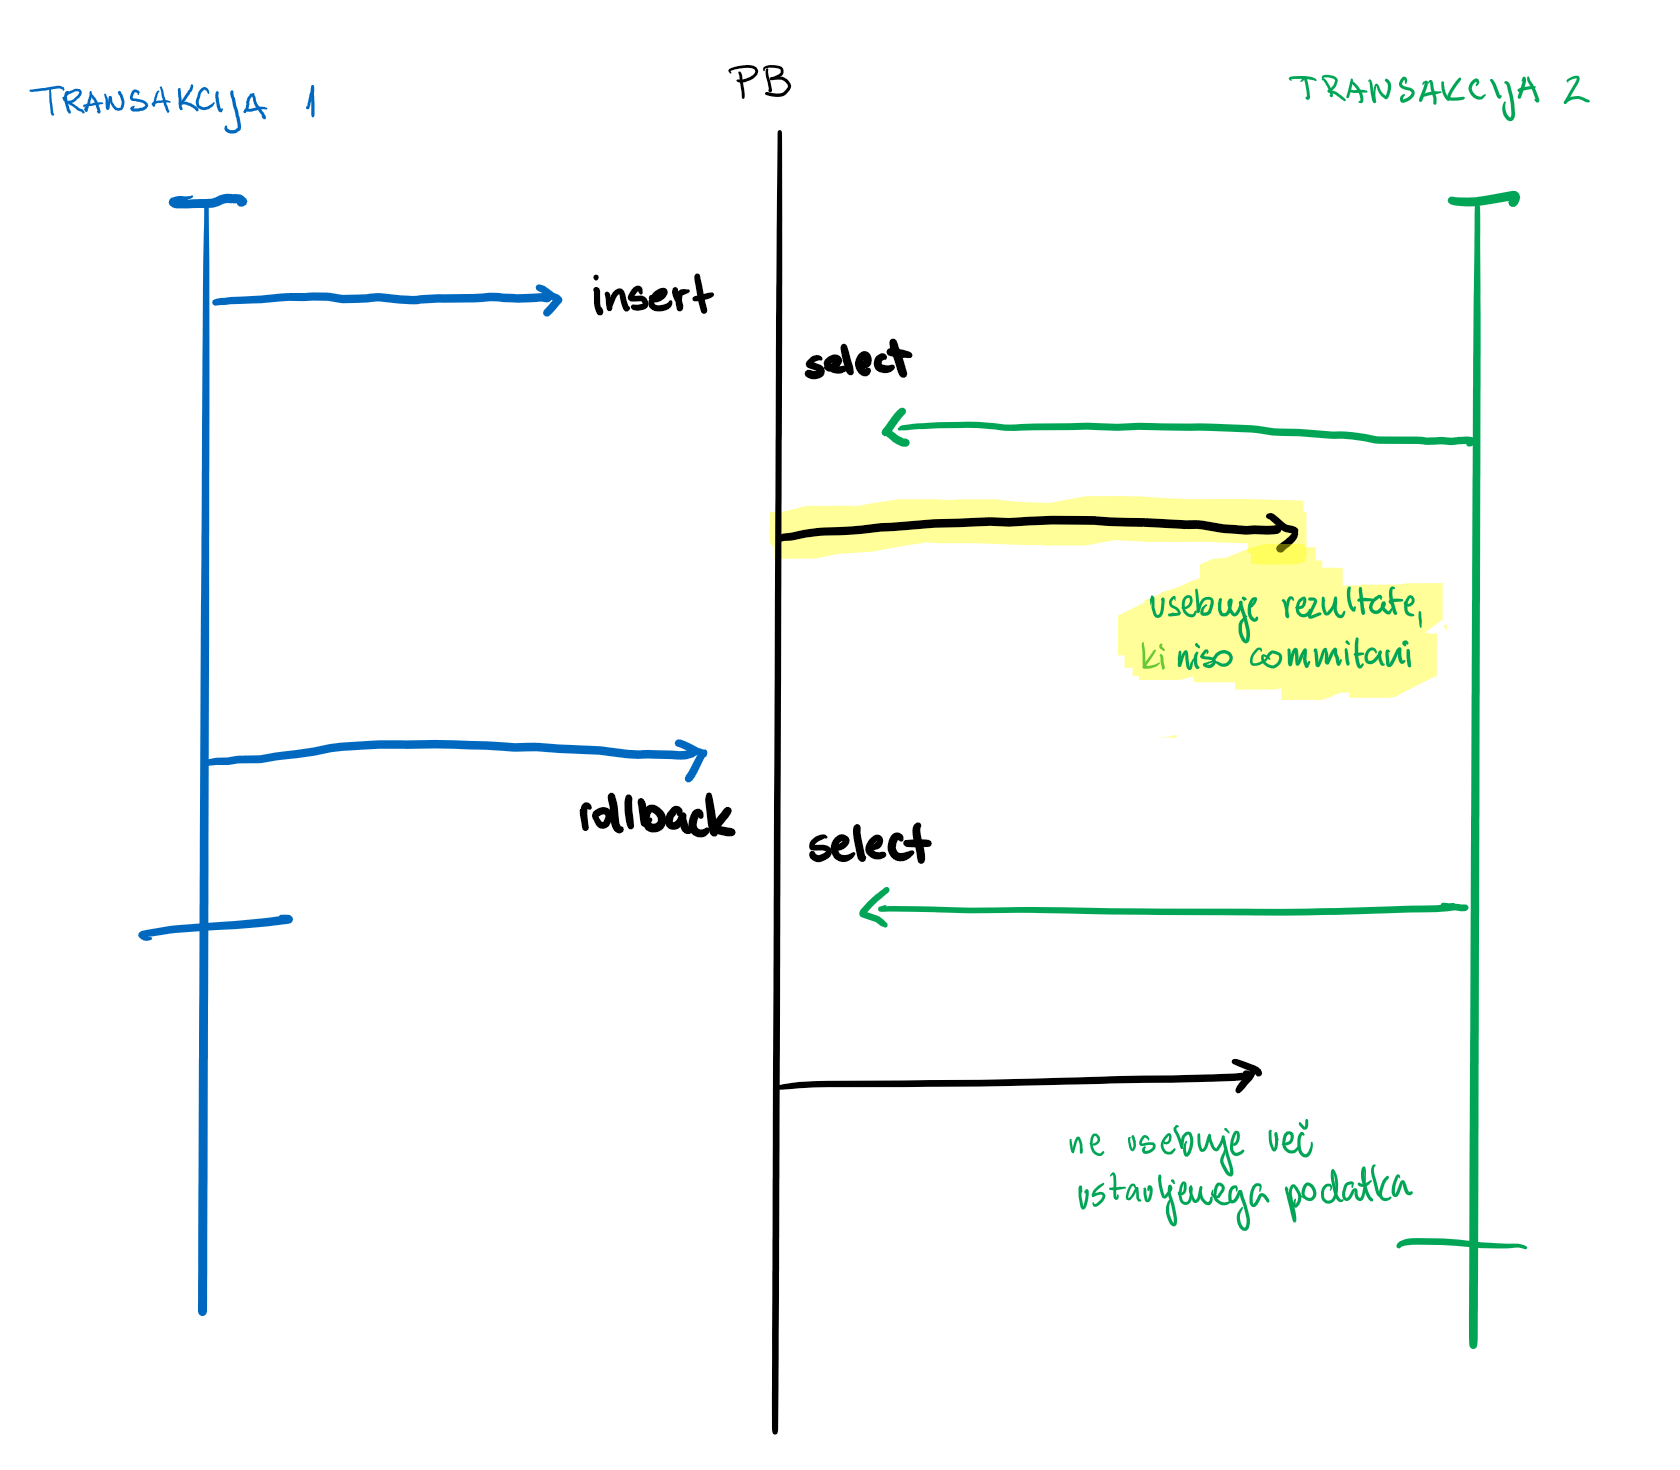 TRANSAKCIJA 1
PB
TRANSAKCIJA 2
insert
select
vsebuje rezultate,
ki niso commitani
rollback
select
ne vsebuje več
vstavljenega podatka